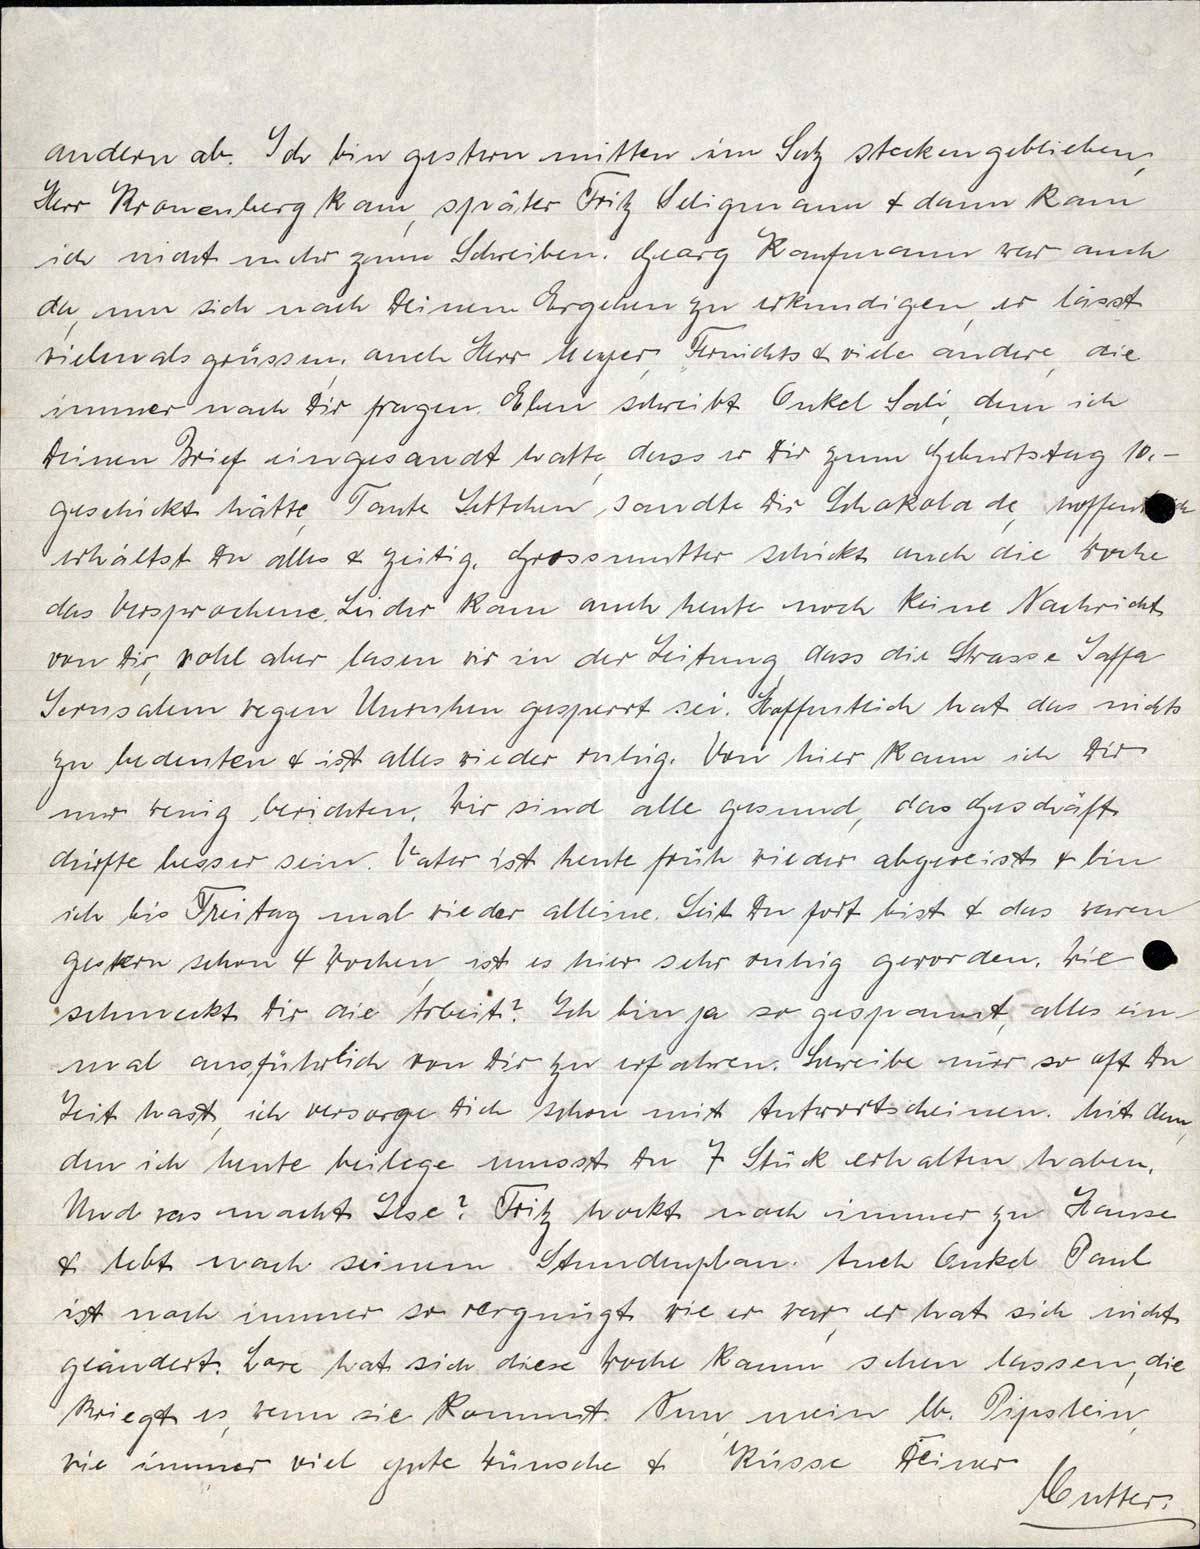 andern ab. Ich bin gestern mitten im Satz steckengeblieben,
Herr Kronenberg kam, später Fritz Seligmann & dann kam
ich nicht mehr zum Schreiben. Georg Kaufmann war auch
da, um sich nach Deinem Ergehen zu erkundigen, er lässt
vielmals grüssen, auch Herr Meyer, & viele andere, die
immer nach Dir fragen. Eben schreibt Onkel Sali, dem ich
Deinen Brief eingesandt hatte, dass er Dir zum Geburtstag 10.-
geschickt hätte, Tante Settchen, sandte Dir Schokolade, hoffentlich
erhältst Du alles & zeitig. Grossmutter schickt auch die Woche
das Versprochene. Leider kam auch heute noch keine Nachricht
von Dir, wohl aber lasen wir in der Zeitung, dass die Strasse Jaffa
Jerusalem wegen Unruhen gesperrt sei. Hoffentlich hat das nichts
zu bedeuten & ist alles wieder ruhig. Von hier kann ich Dir
nur wenig berichten. Wir sind alle gesund, das Geschäft
dürfte besser sein. Vater ist heute früh wieder abgereist & bin
ich bis Freitag mal wieder alleine. Seit Du fort bist & das waren
gestern schon 4 Wochen, ist es hier sehr ruhig geworden. Wie
schmeckt Dir die Arbeit? Ich bin ja so gespannt, alles ein-
mal ausführlich von Dir zu erfahren. Schreibe nur so oft Du
Zeit hast, ich versorge Dich schon mit Antwortscheinen. Mit dem,
den ich heute beilege musst Du 7 Stück erhalten haben.
Und was macht Ilse? Fritz hockt noch immer zu Hause
& lebt nach seinem Stundenplan. Auch Onkel Paul
ist noch immer so vergnügt wie er war, er hat sich nicht
geändert. Lore hat sich diese Woche kaum sehen lassen, die
kriegt es, wenn sie kommt. Nun, mein lb. Pipstein,
wie immer viel gute Wünsche & Küsse Deiner
Mutter.